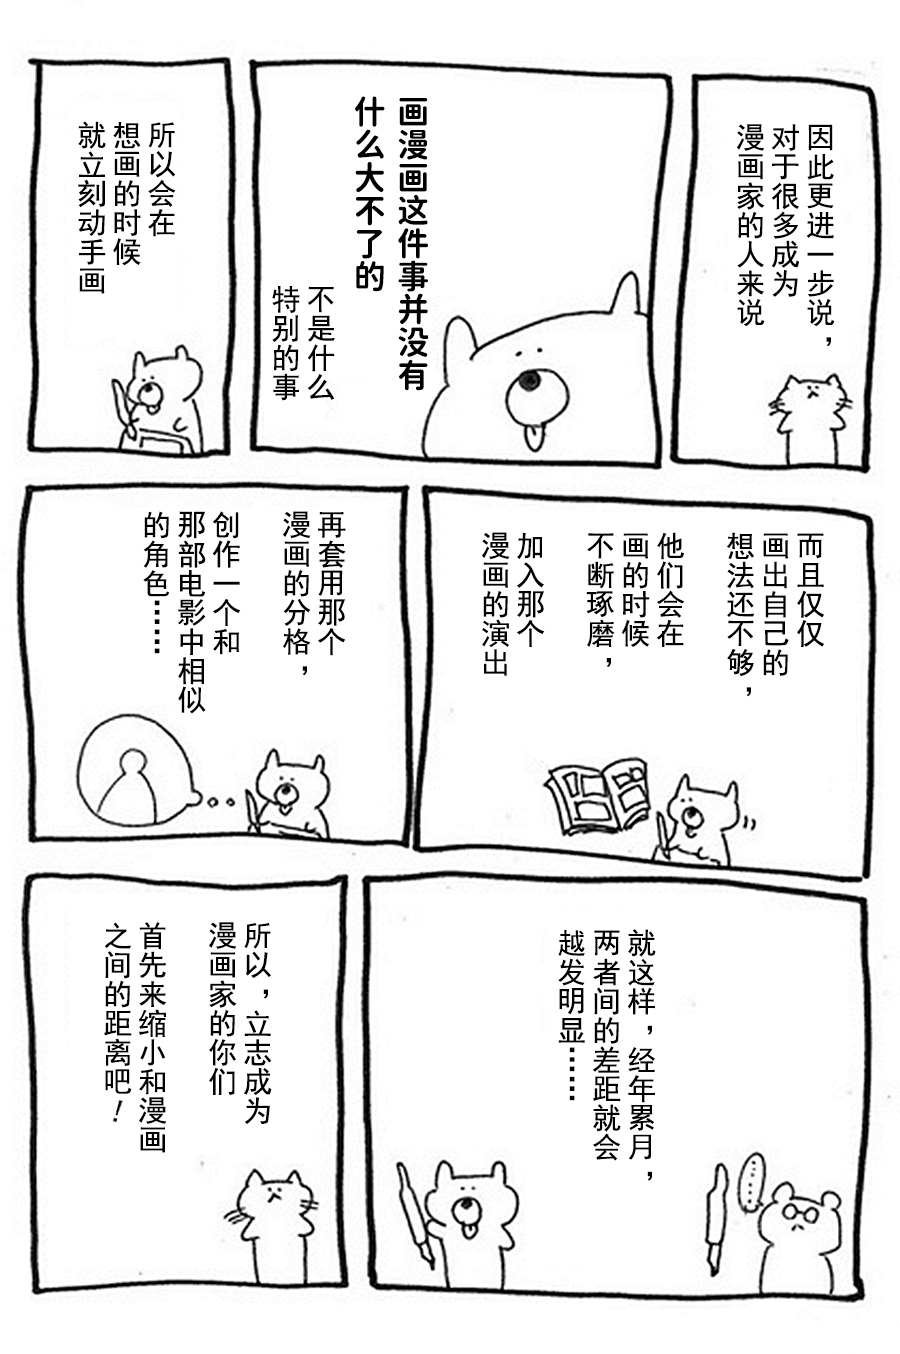 因此更进一步说，
对于很多成为
漫画家的人来说
画漫画这件事并没有
什么大不了的
不是什么
特别的事
所以会在
想画的时候
就立刻动手画
而且仅仅
画出自己的
想法还不够，
他们会在
画的时候
不断琢磨，
加入那个
漫画的演出
再套用那个
漫画的分格，
创作一个和
那部电影中相似
的角色……
就这样，经年累月，
两者间的差距就会
越发明显……
……
所以，立志成为
漫画家的你们
首先来缩小和漫画
之间的距离吧！